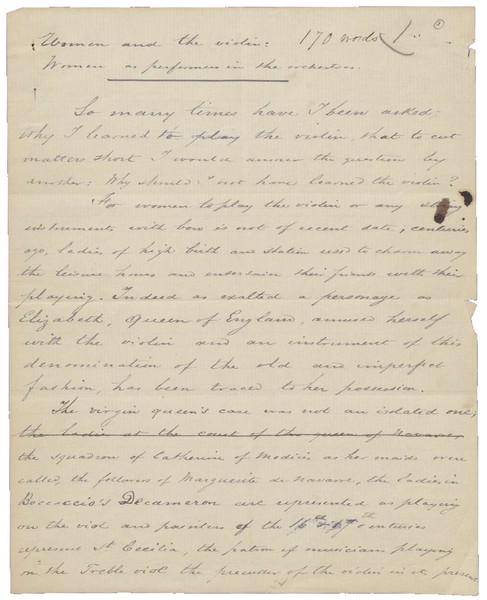 Women and the violin: 170 words
Women as performers in the orchestras.
So many times have I been asked,
why I learned to play the violin, that to cut
matters short I would answer the question by
another: Why should I not have learned the violin?
For women to play the violin or any string
instruments with bow is not of recent date, centuries
ago, ladies of high birth and station used to charm away
the leisure hours and entertain their friends with their
playing. Indeed as exalted a personage as
Elizabeth, Queen of England, amused herself
with the violin and an instrument of this
denomination of the old and imperfect
fashion, has been traced to her possession.
The virgin queen's case was not an isolated one;
the ladies at the court of the queen of Navarre
the squadron of Catherine of Medicis as her maids were
called, the followers of Marguerite de Navarre, the ladies in
Boccaccio's Decameron are represented as playing
on the viol and painters of the 16th & 17th centuries
represent St. Cecilia, the patron of musicians playing
on the Treble viol the precursor of the violin in its present